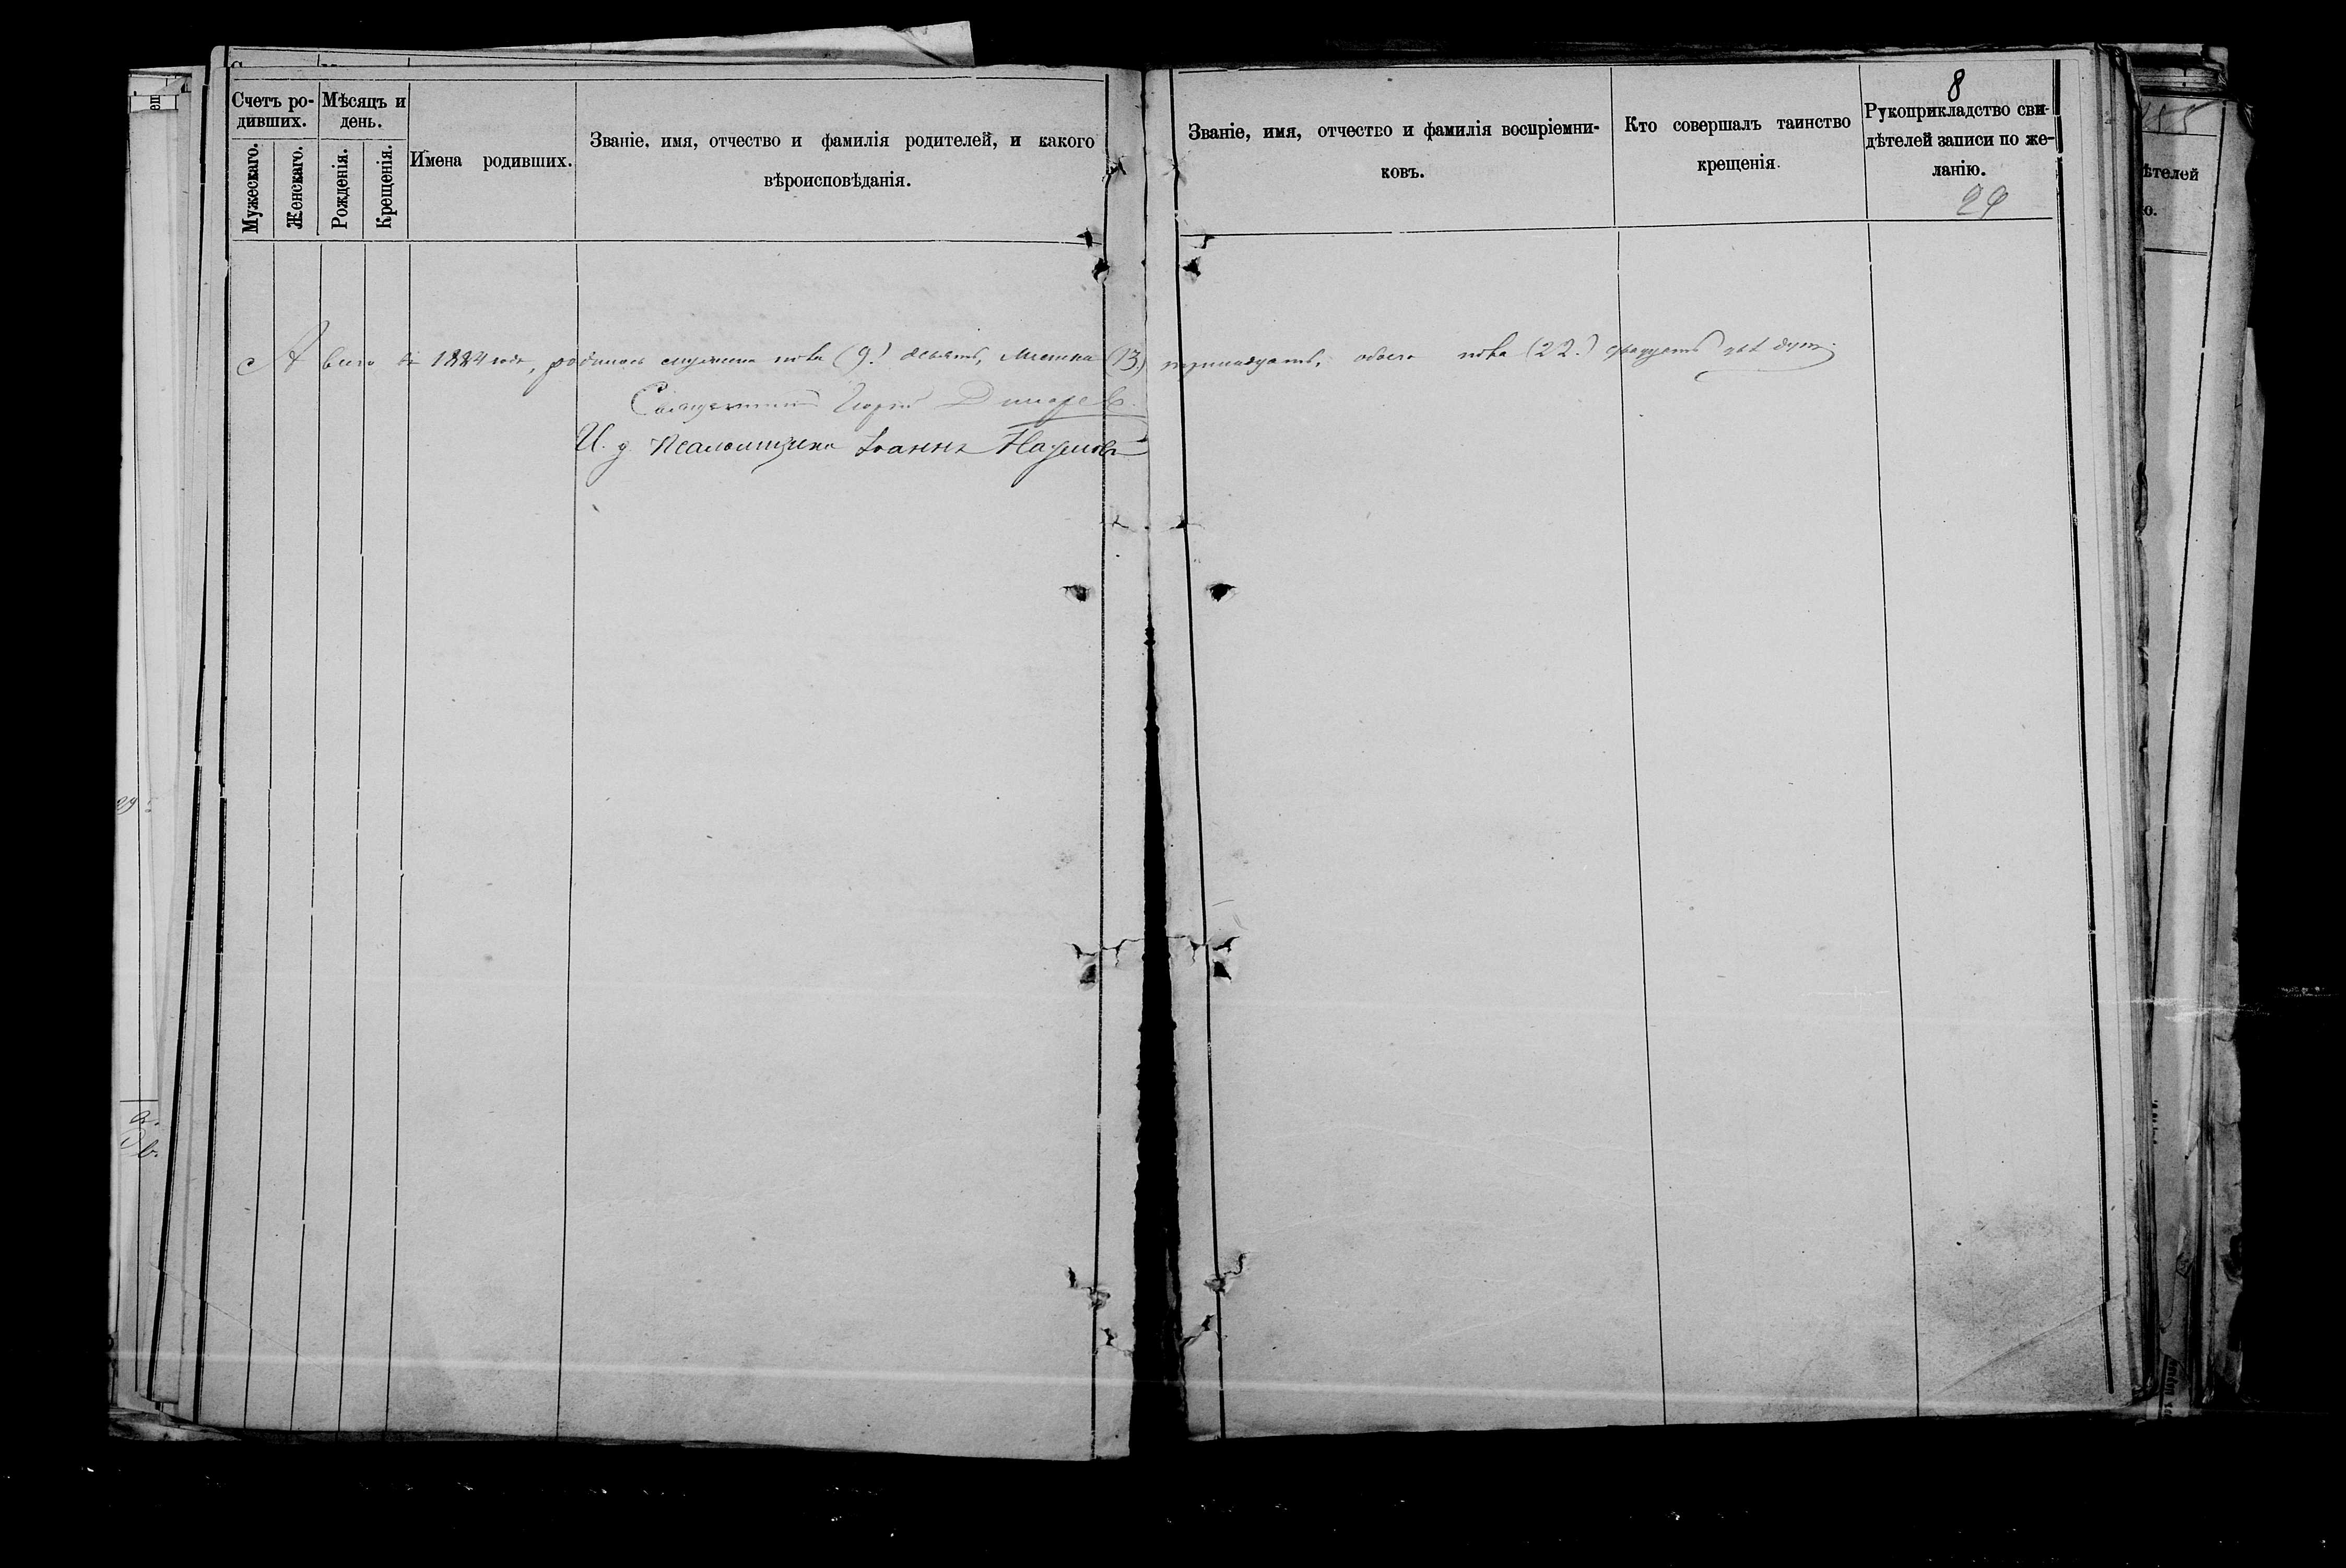 Счетъ ро-
дившихъ.
Мужескаго.
Женскаго.
Мѣсяцъ и
день.
Рожденія.
Крещенія.
Имена родивших.
Званіе, имя, отчество и фамилія родителей, и какого
вѣроисповѣданія.
Званіе, имя, отчество и фамилія воспріемни-
ковъ.
Кто совершалъ таинство
крещенія.
8
Рукоприкладство сви-
дѣтелей записи по же-
ланію.
29
А всего въ 1884 году, родилось мужеска пола (9.) девять, женска (13.) тринадцать, обоего пола (22.) двадцать двѣ душ.
Священникъ Георгій
И. д. Псаломщика Іоаннъ Наумовъ
155
ѣтелей
ю.